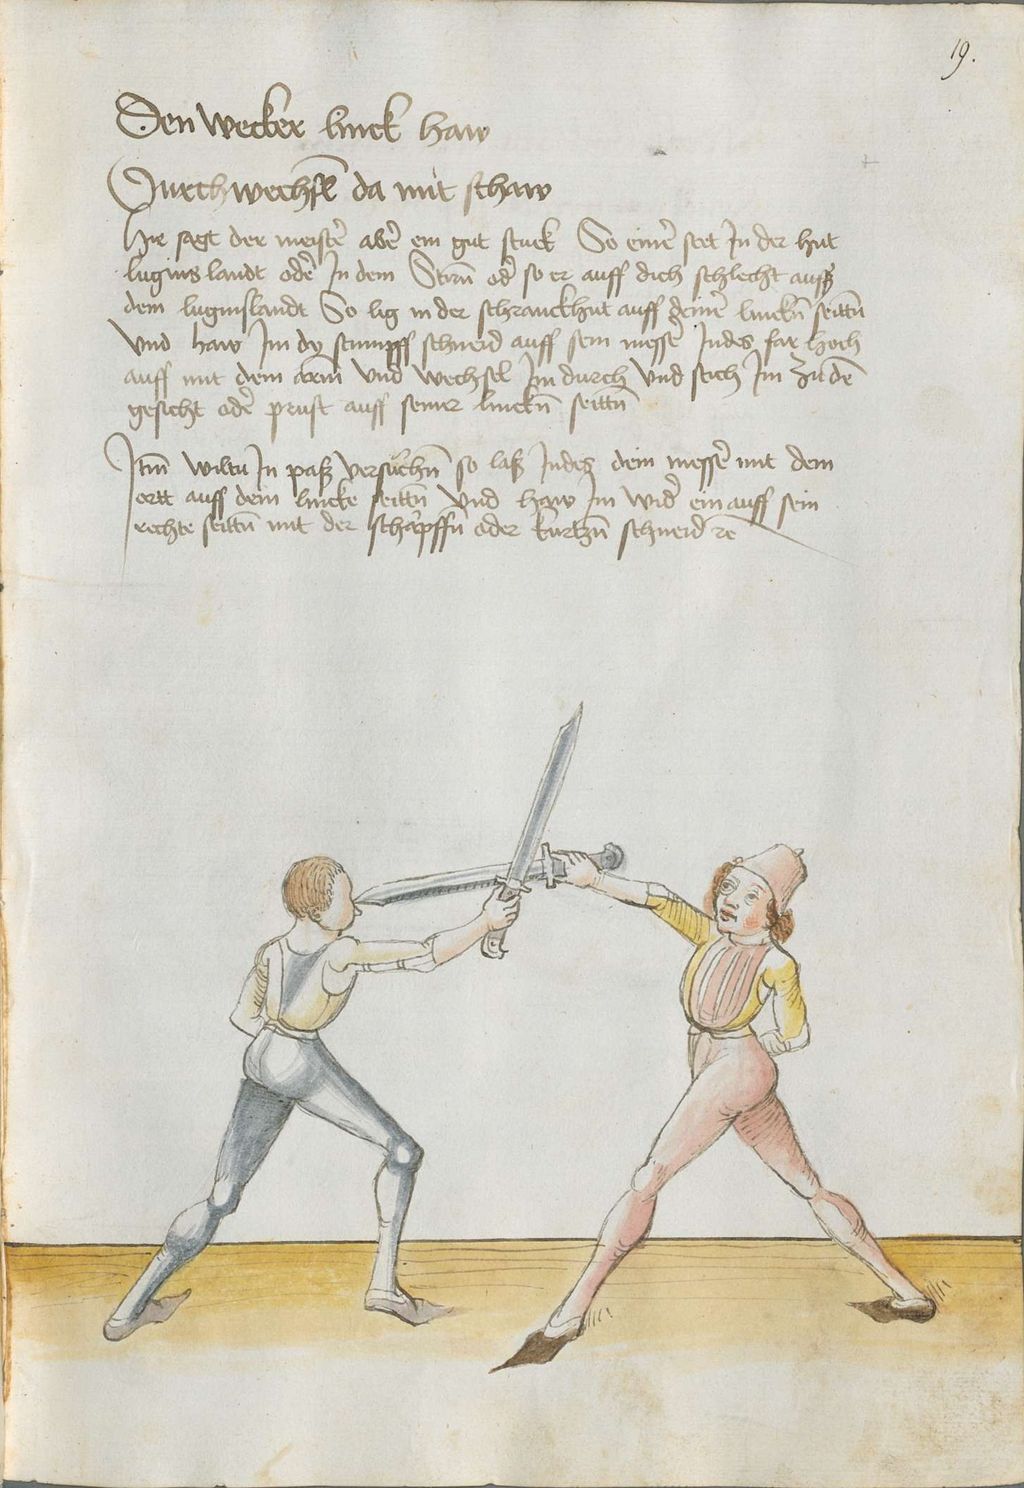 19.
Den wecker linck haw
Durchwechsl̄ da mit schaw
Hie sagt der meistē abē ein gut stuck So einē stet In der hut
luginslandt odē In dem Stirn̄ od so er auff dich schlecht auß
dem luginslandt So lig in der schranckhut auff deinē linckn̄ seittn̄
Vnd haw Im dy stumpff schneid auff sein messē Indes far hoch
auff mit dem arm̄ Vnd wechsel Im durch Vnd stich Im zu dē
gesicht odē prust auff seiner linckn̄ seittn̄
Itm̄ wiltu In paß versuchn̄ so laß Indes dein messē mit dem
ortt auff dein lincke seittn̄ Vnd haw Im wid ein auff sein
rechte seittn̄ mit der scharpffn̄ oder kurtzn̄ schneid rē